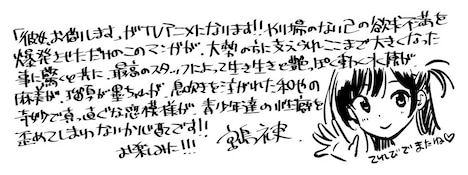 「彼女、お借りします」がTVアニメになります!! やり場のない己の欲求不満を
爆発させただけのこのマンガが、大勢の方に支えられここまで大きくなった
事に驚くと共に、最高のスタッフによって生き生きと艶っぽく動く水原が
麻美が、瑠夏が墨ちゃんが、息吹きを注がれた和也の
奇妙で真っ直ぐな恋模様が、青少年達の性癖を
歪めてしまわないか心配です!!
お楽しみに!!!
てれびでまたね♡